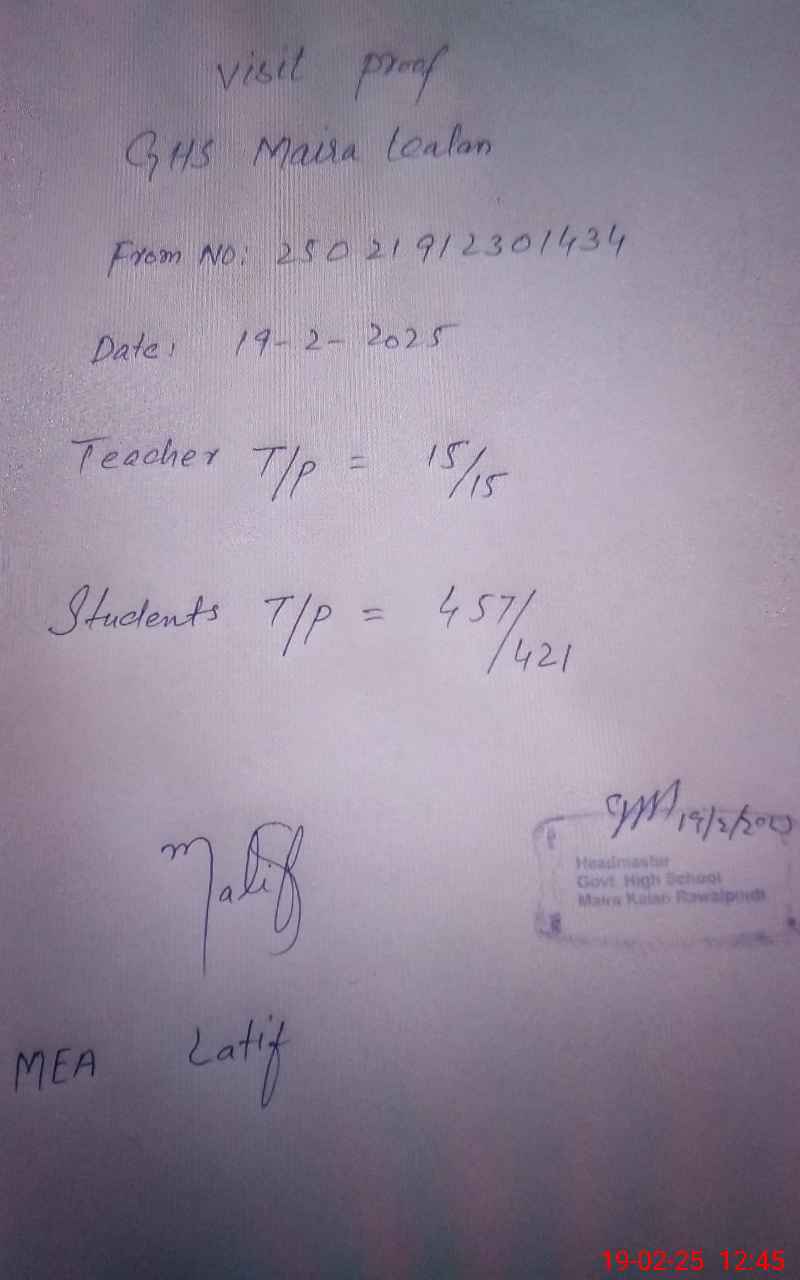 Visit proof
GHS Maira Kalan
From NO: 25021912301434
Date: 19-2-2025
Teacher T/P = 15/15
Students T/P = 457/421
19/2/2025
Headmaster
Govt. High School
Maira Kalan Rawalpindi
MEA Latif
19-02-25 12:45